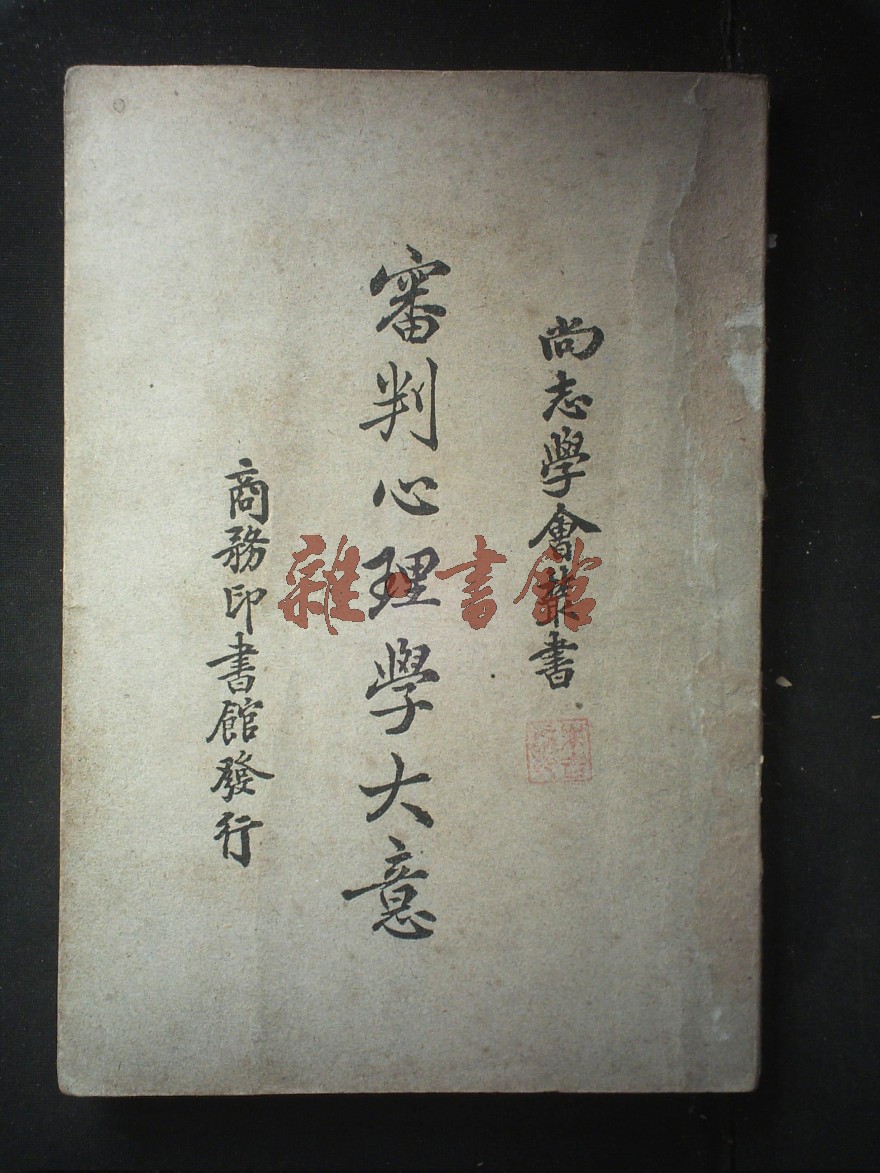 尚志學會叢書
審判心理學大意
商務印書館發行
雜·書館